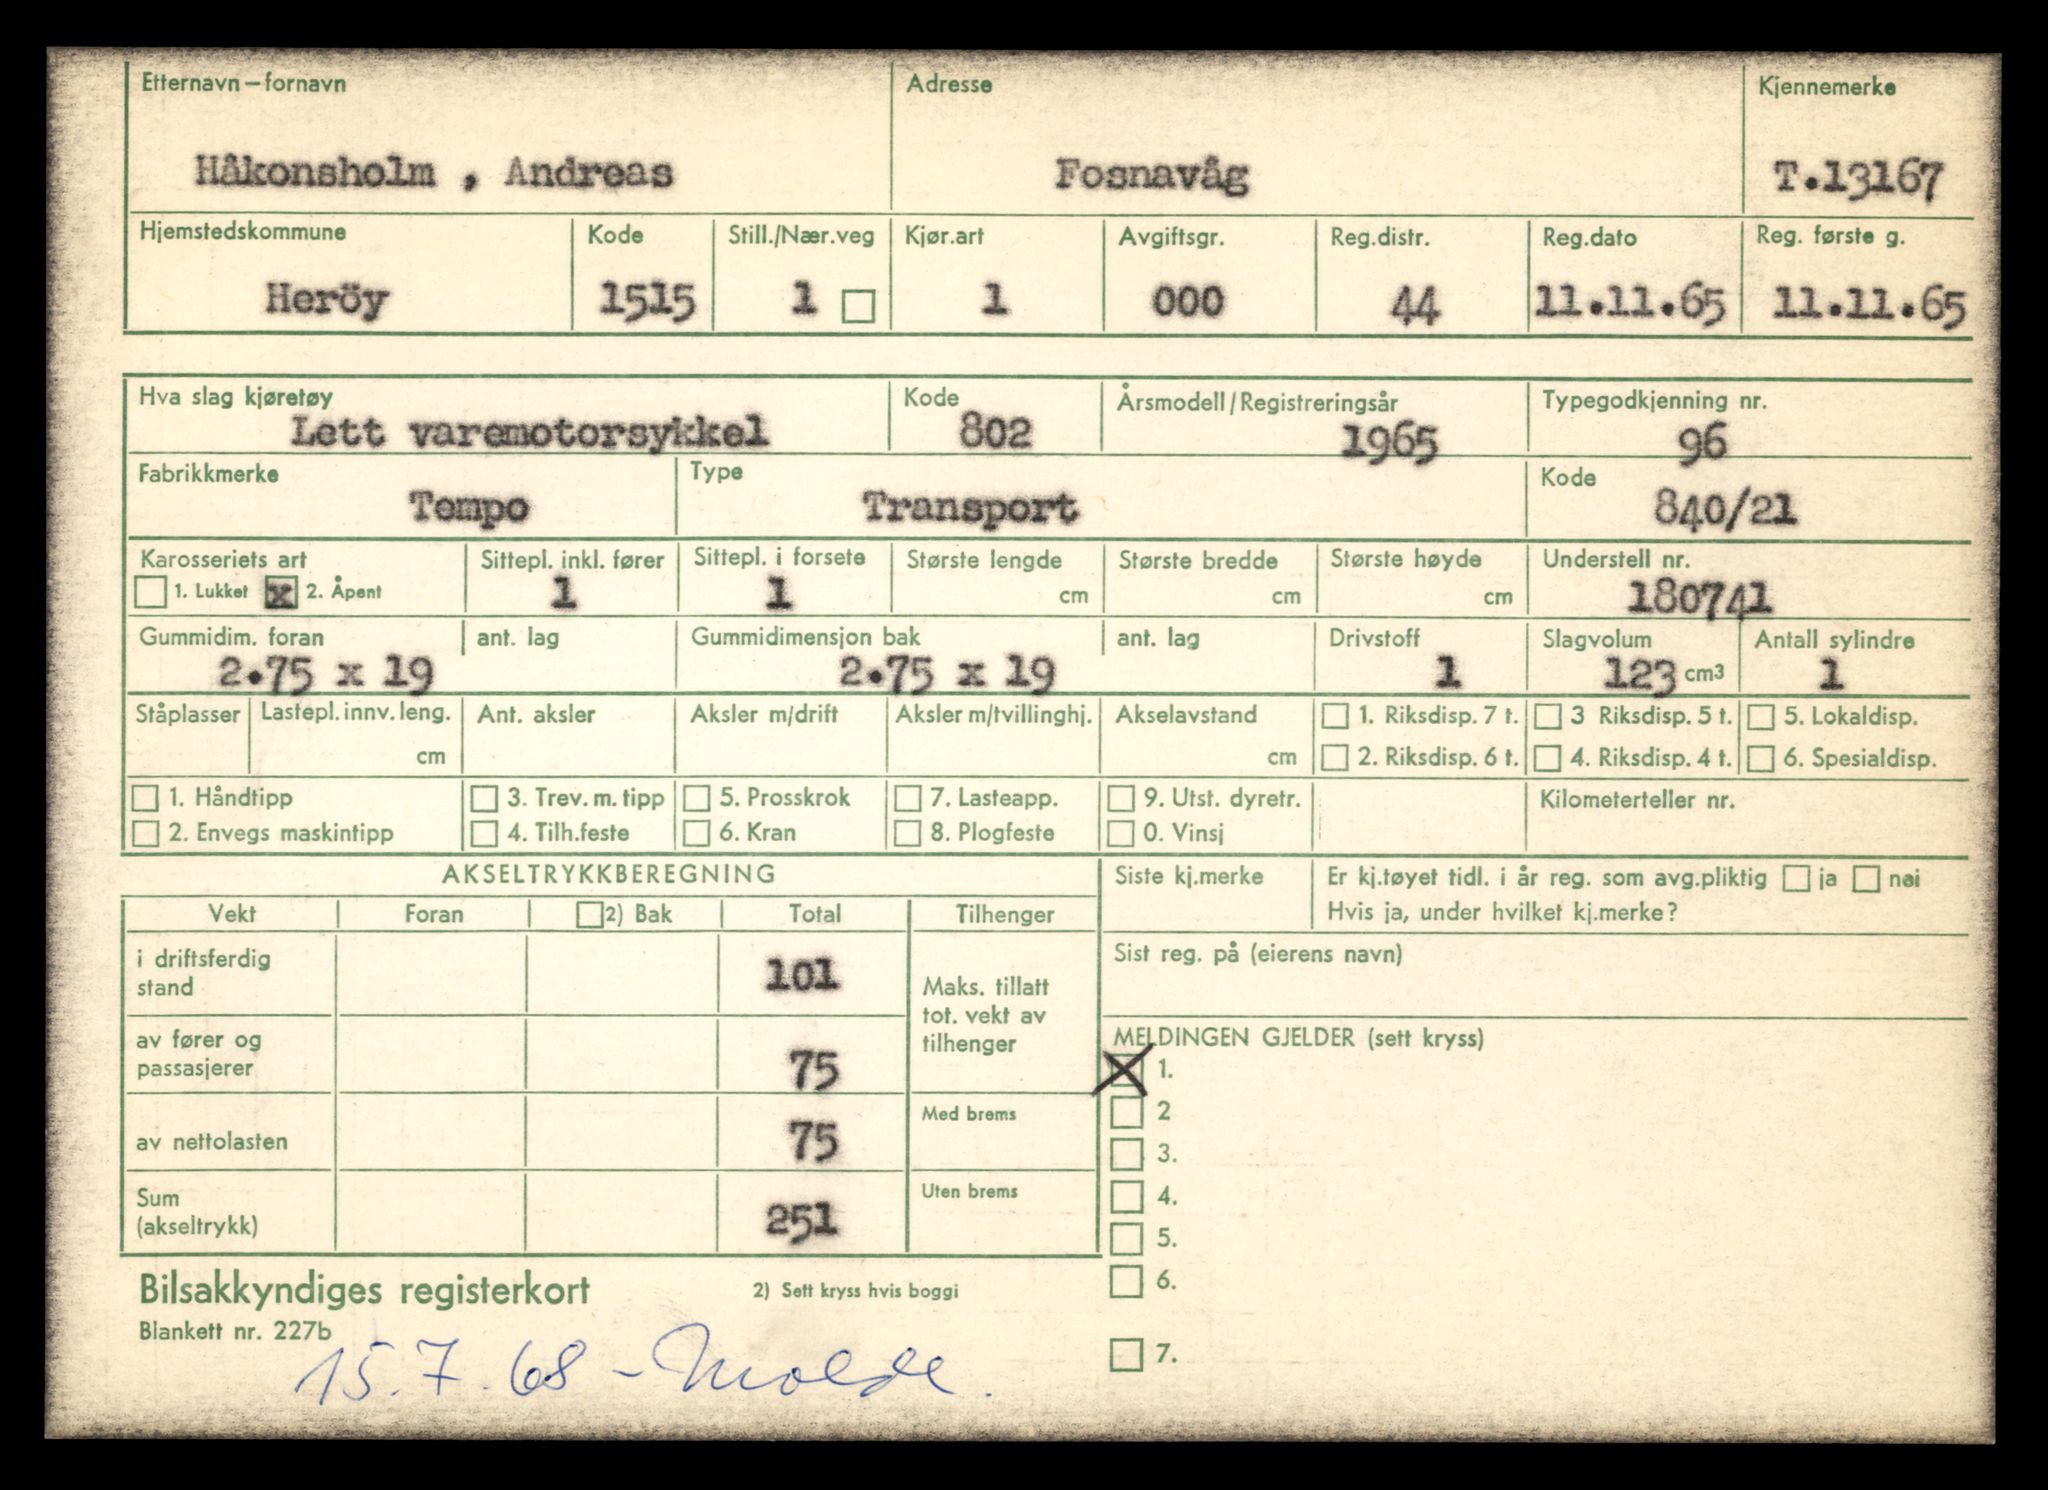 Etternavn – fornavn Adresse Kjennemerke
Håkonsholm , Andreas Fosnavåg T.13167
Hjemstedskommune Kode Still./Nær.veg Kjør.art Avgiftsgr. Reg.distr. Reg.dato Reg. første g.
Heröy 1515 1 1 000 44 11.11.65 11.11.65
Hva slag kjøretøy Kode Årsmodell/Registreringsår Typegodkjenning nr.
Lett varemotorsykkel 802 1965 96
Fabrikkmerke Type Kode
Tempo Transport 840/21
Karosseriets art Sittepl. inkl. fører Sittepl. i forsete Største lengde Største bredde Største høyde Understell nr.
1. Lukket x 2. Åpent 1 1 cm cm cm 180741
Gummidim. foran ant. lag Gummidimensjon bak ant. lag Drivstoff Slagvolum Antall sylindre
2.75 x 19 2.75 x 19 1 123 cm3 1
Ståplasser Lastepl. innv. leng. Ant. aksler Aksler m/drift Aksler m/tvillinghj. Akselavstand 1. Riksdisp. 7 t. 3 Riksdisp. 5 t. 5. Lokaldisp.
cm cm 2. Riksdisp. 6 t. 4. Riksdisp. 4 t. 6. Spesialdisp.
1. Håndtipp 3. Trev. m. tipp 5. Prosskrok 7. Lasteapp. 9. Utst. dyretr. Kilometerteller nr.
2. Envegs maskintipp 4. Tilh.feste 6. Kran 8. Plogfeste 0. Vinsj
AKSELTRYKKBEREGNING Siste kj.merke Er kj.tøyet tidl. i år reg. som avg.pliktig ja nei
Vekt Foran 2) Bak Total Tilhenger Hvis ja, under hvilket kj.merke?
i driftsferdig stand 101 Maks. tillatt tot. vekt av tilhenger Sist reg. på (eierens navn)
av fører og passasjerer 75 MELDINGEN GJELDER (sett kryss)
X 1.
av nettolasten 75 Med brems 2
3.
Sum (akseltrykk) 251 Uten brems 4.
5.
Bilsakkyndiges registerkort 2) Sett kryss hvis boggi 6.
Blankett nr. 227b
15.7.68 – Molde. 7.